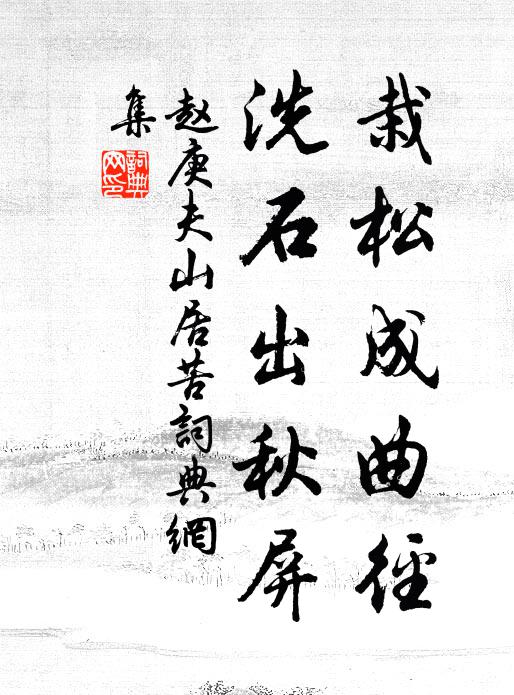 栽松成曲徑
洗石出秋屏
赵庚夫山居苦詞典網
集
詞典网印